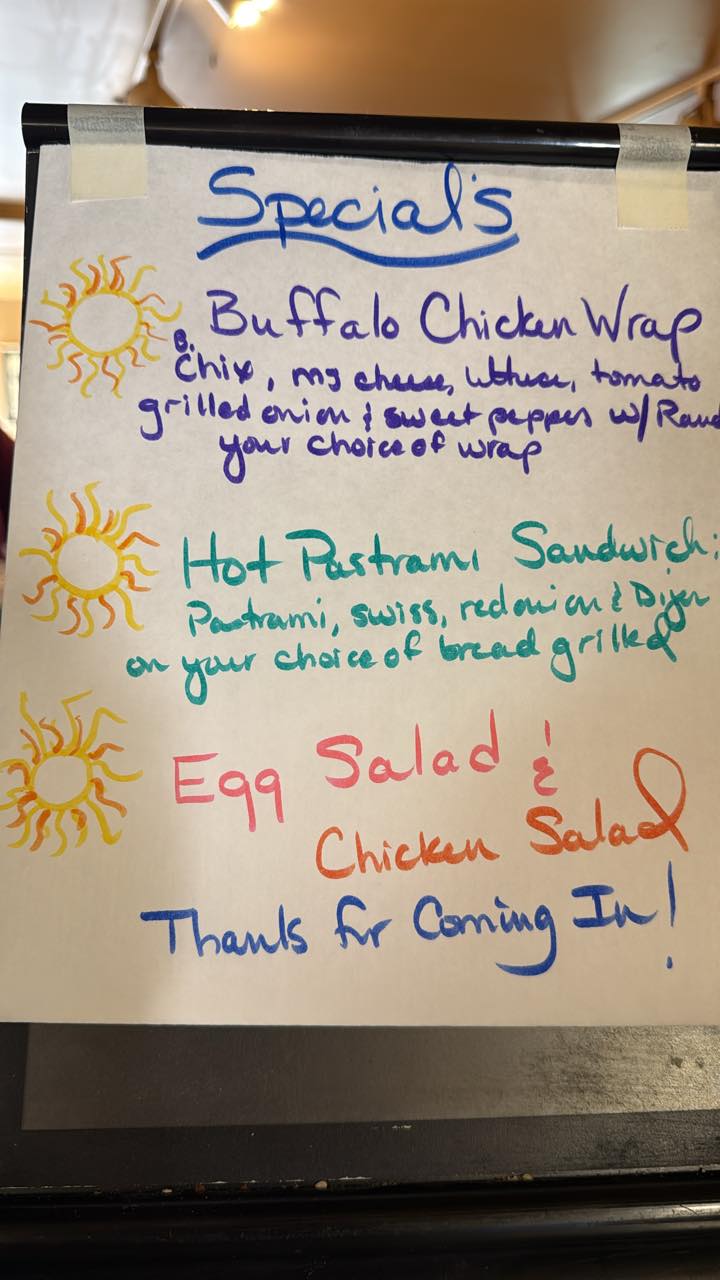 Special's
Buffalo Chicken Wrap
B. Chix, my cheese, lettuce, tomato
grilled onion & sweet peppers w/
your choice of wrap
Hot Pastrami Sandwich:
Pastrami, swiss, red onion & Dijon
on your choice of bread grilled
Egg Salad &
Chicken Salad
Thanks for Coming In!